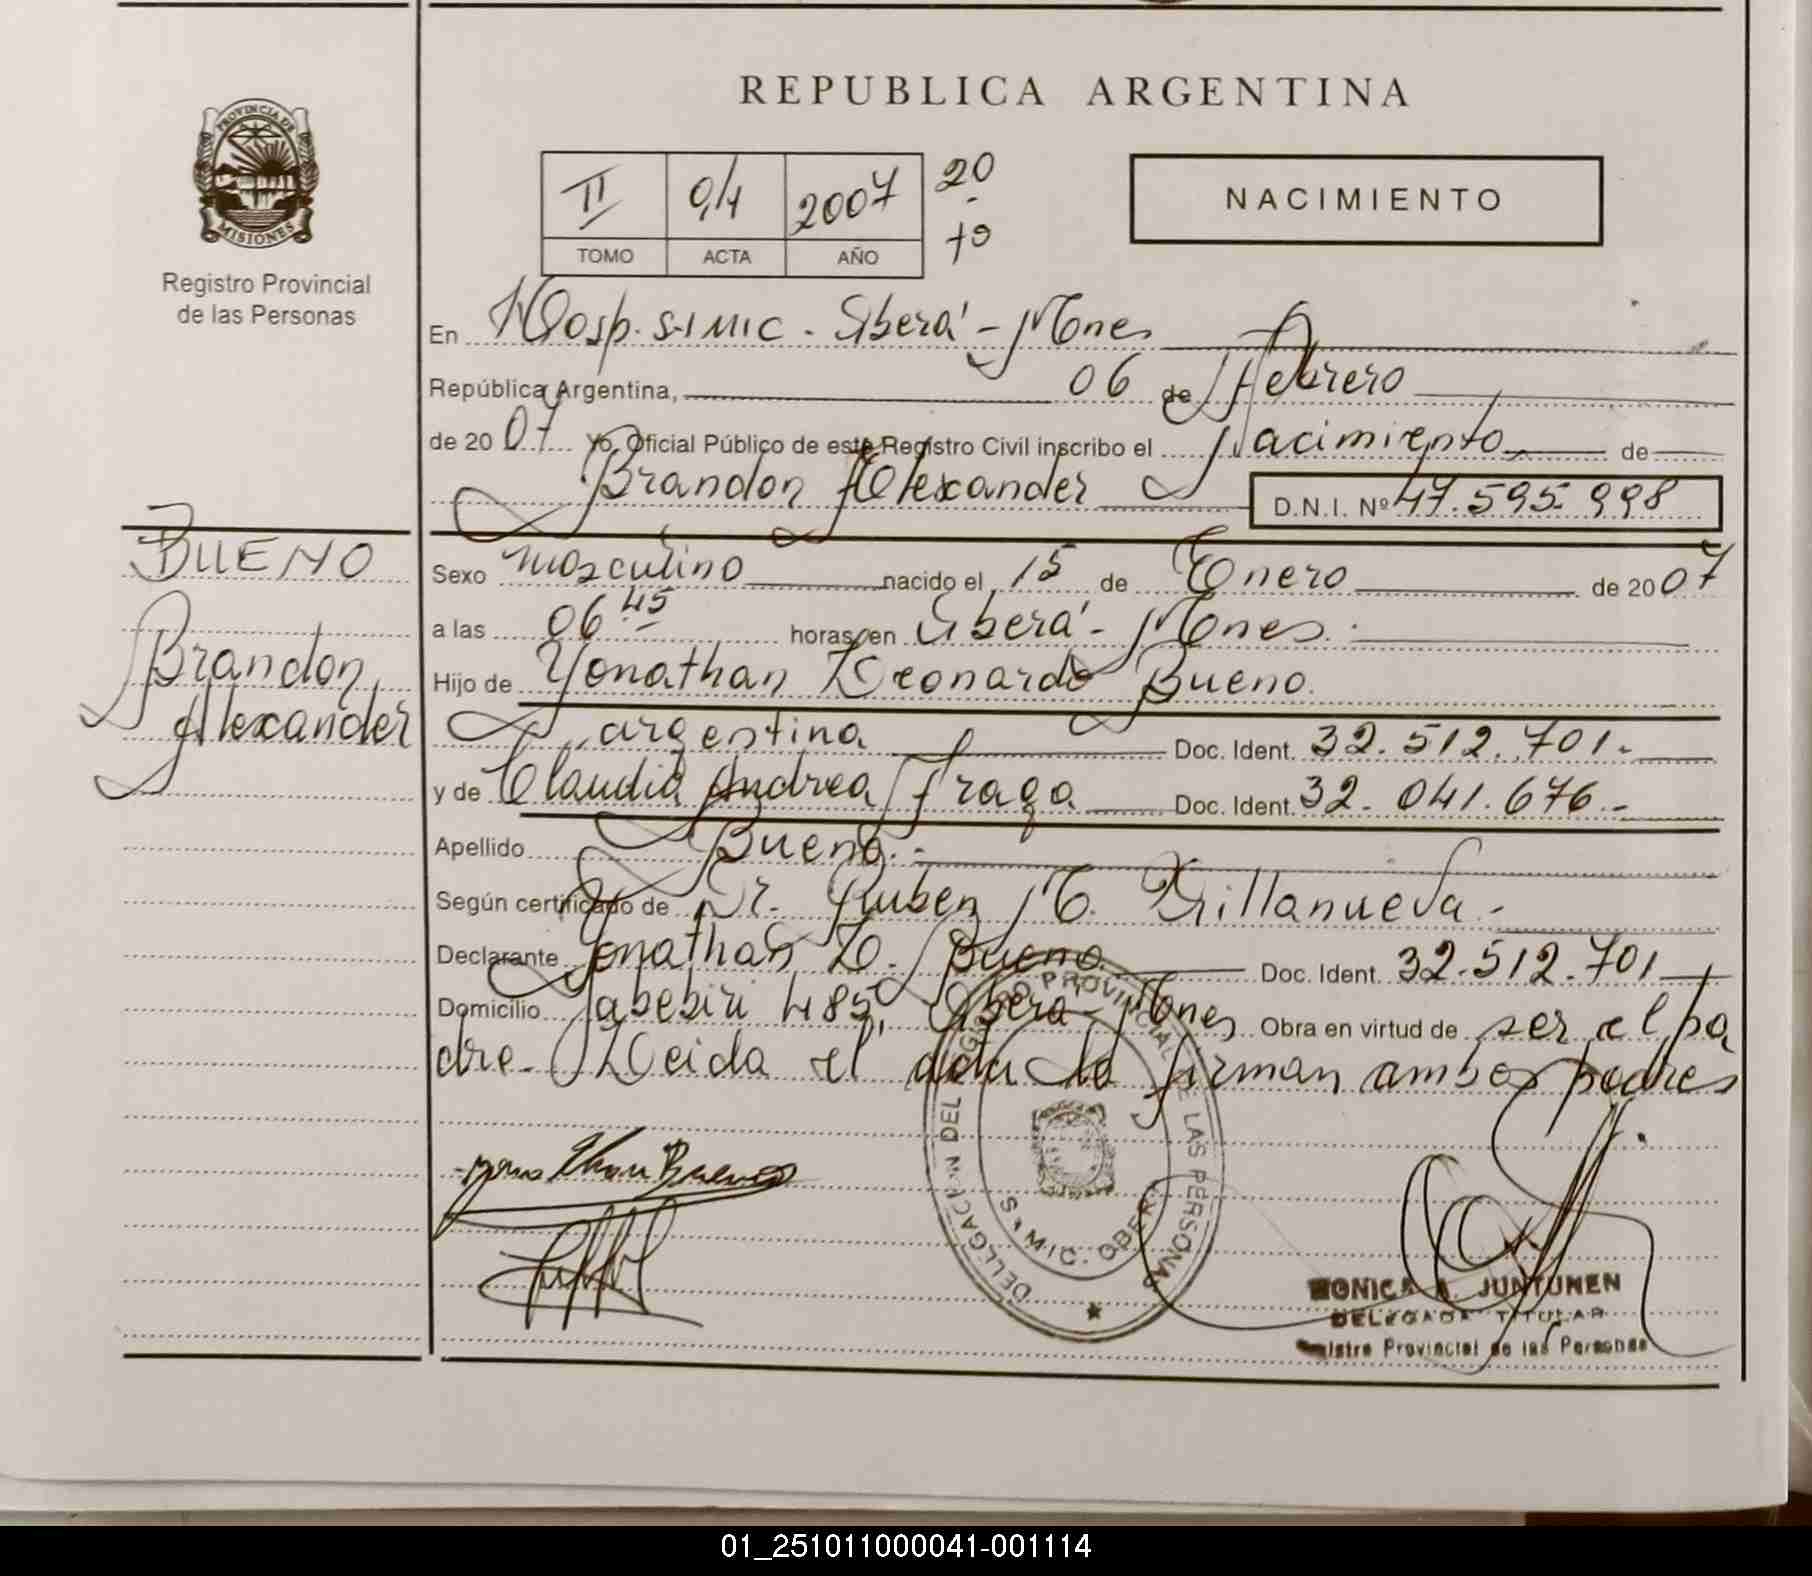 REPUBLICA ARGENTINA
PROVINCIA DE
MISIONES
Registro Provincial
de las Personas
II 2007 20
TOMO ACTA AÑO
NACIMIENTO
En Hosp. SAMIC - Oberá - Mnes
República Argentina, 06 de Febrero
de 20 07 Yo, Oficial Público de este Registro Civil inscribo el Nacimiento de
Brandon Alexander D.N.I. Nº 47.595.998
BUENO
Brandon
Alexander
Sexo masculino nacido el 15 de Enero de 20 07
a las 06 45 horas en Oberá - Mnes.
Hijo de Yonathan Leonardo Bueno.
argentina Doc. Ident. 32.512.701.-
y de Claudia Andrea Fraga Doc. Ident. 32.041.676.-
Apellido Bueno.-
Según certificado de Dr. Ruben M. Villanueva.-
Declarante Yonathan L. Bueno Doc. Ident. 32.512.701
Domicilio Yabebiri 485, Oberá - Mnes Obra en virtud de ser el pa
dre. Leida el acta la firman ambos padres
DELEGACION DEL REGISTRO PROVINCIAL DE LAS PERSONAS
MONICA A. JUNTUNEN
DELEGADA TITULAR
Registro Provincial de las Personas
01_251011000041-001114